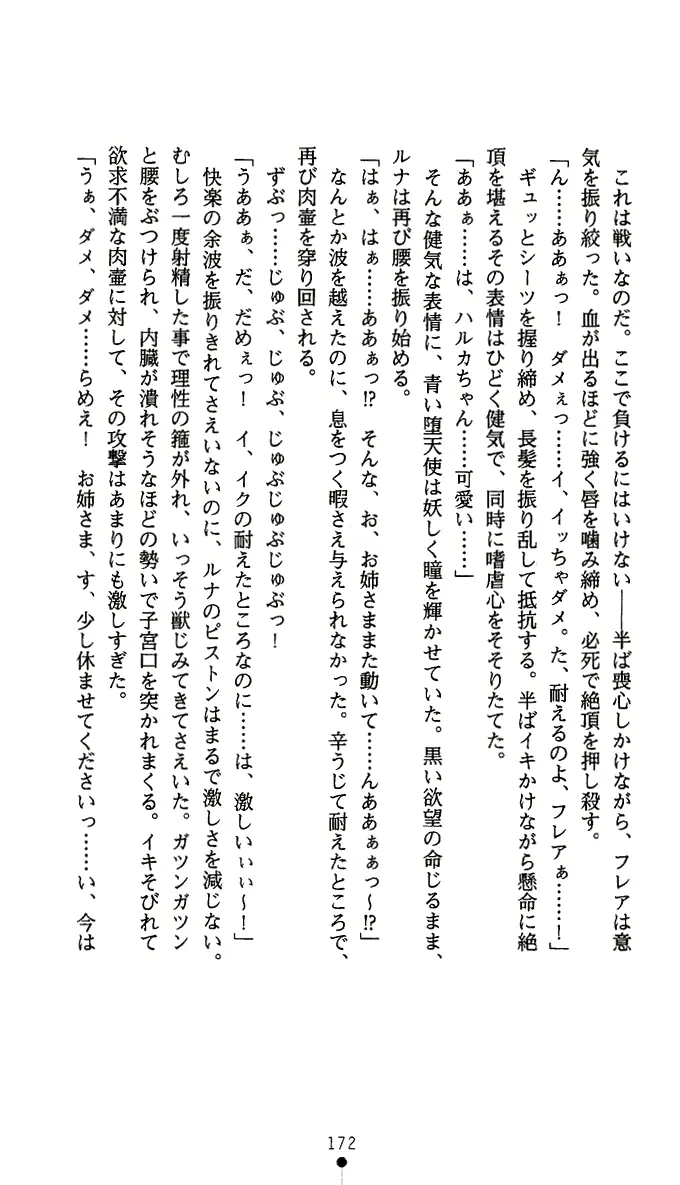 これは戦いなのだ。ここで負けるにはいけない――半ば喪心しかけながら、フレアは意
気を振り絞った。血が出るほどに強く唇を噛み締め、必死で絶頂を押し殺す。
「ん……ああぁっ！　ダメぇっ……イ、イッちゃダメ。た、耐えるのよ、フレアぁ……！」
ギュッとシーツを握り締め、長髪を振り乱して抵抗する。半ばイキかけながら懸命に絶
頂を堪えるその表情はひどく健気で、同時に嗜虐心をそそりたてた。
「ああぁ……は、ハルカちゃん……可愛い……」
そんな健気な表情に、青い堕天使は妖しく瞳を輝かせていた。黒い欲望の命じるまま、
ルナは再び腰を振り始める。
「はぁ、はぁ……ああぁっ!?　そんな、お、お姉さままた動いて……んああぁぁっ～!?」
なんとか波を越えたのに、息をつく暇さえ与えられなかった。辛うじて耐えたところで、
再び肉壷を穿り回される。
ずぶっ……じゅぶ、じゅぶ、じゅぶじゅぶじゅぶっ！
「うああぁ、だ、だめぇっ！　イ、イクの耐えたところなのに……は、激しいぃぃ～！」
快楽の余波を振りきれてさえいないのに、ルナのピストンはまるで激しさを減じない。
むしろ一度射精した事で理性の箍が外れ、いっそう獣じみてきてさえいた。ガツンガツン
と腰をぶつけられ、内臓が潰れそうなほどの勢いで子宮口を突かれまくる。イキそびれて
欲求不満な肉壷に対して、その攻撃はあまりにも激しすぎた。
「うぁ、ダメ、ダメ……らめえ！　お姉さま、す、少し休ませてくださいっ……い、今は
172